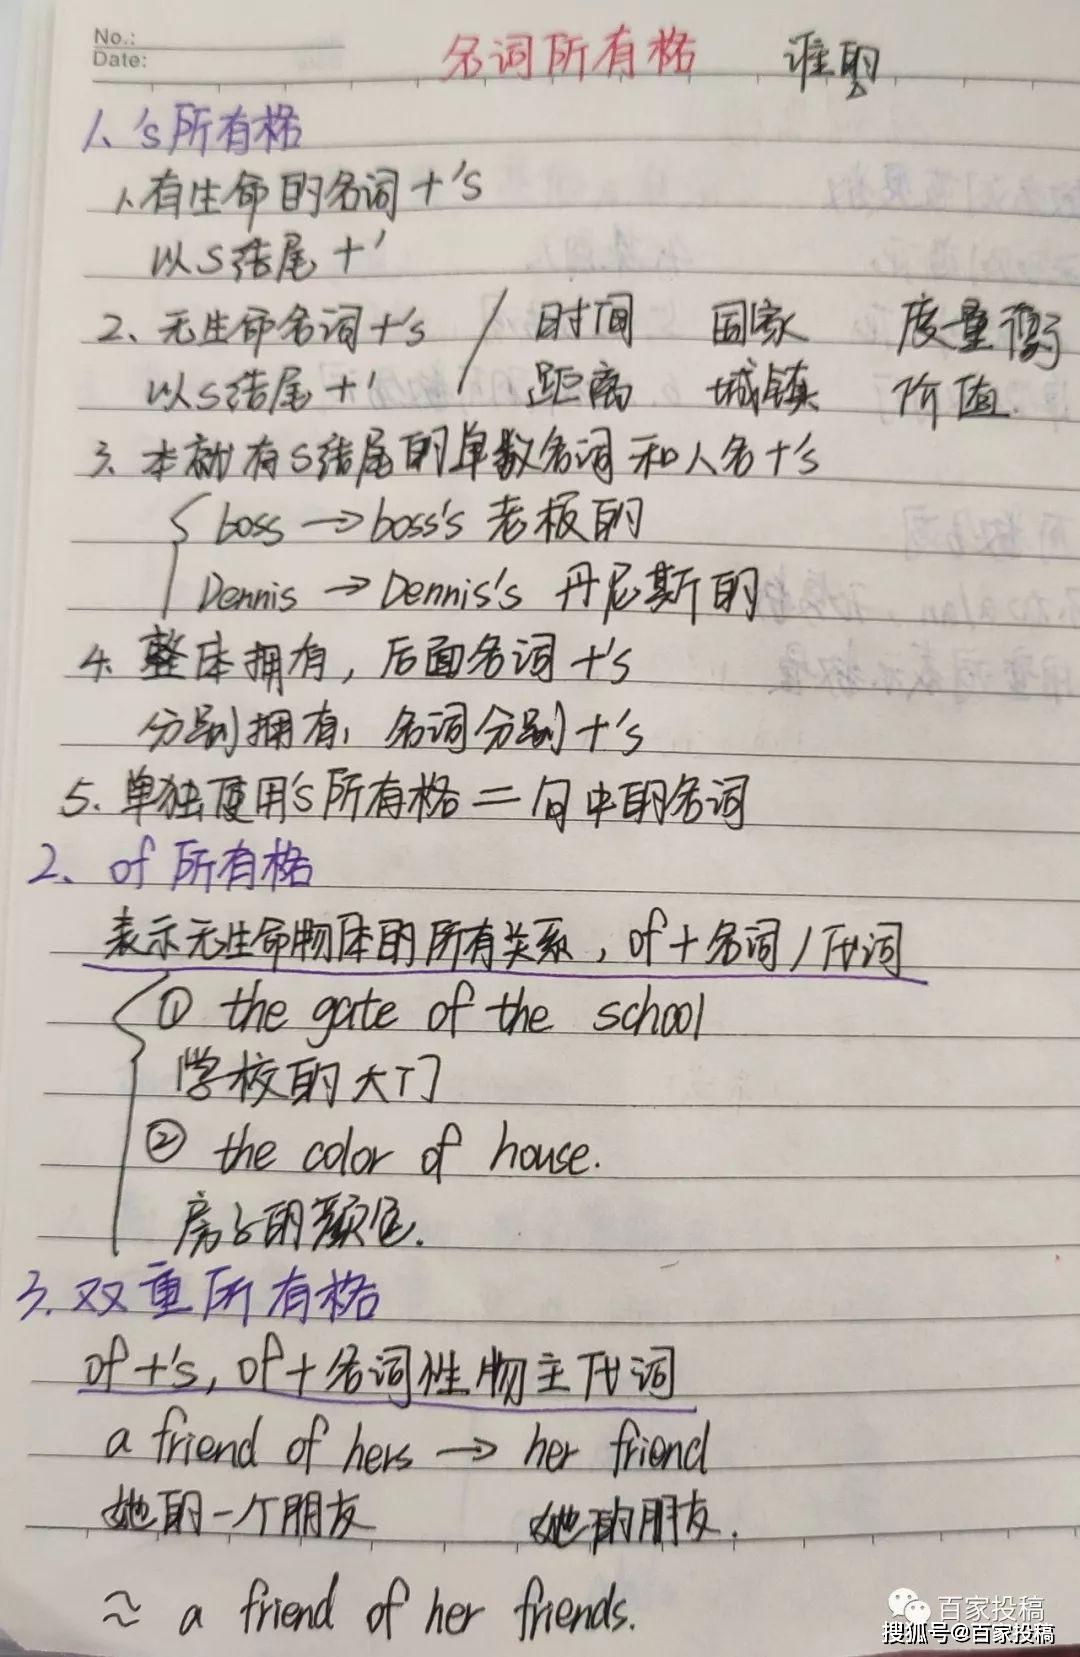 No.:
Date:
名词所有格 谁的
1、's所有格
1、有生命的名词+'s
以s结尾+'
2、无生命名词+'s / 时间 国家 度量衡
以s结尾+' 距离 城镇 价值.
3、本就有s结尾的单数名词和人名+'s
boss → boss's 老板的
Dennis → Dennis's 丹尼斯的
4、整体拥有，后面名词+'s
分别拥有，名词分别+'s
5、单独使用's所有格=句中的名词
2、of所有格
表示无生命物体的所有关系，of+名词/代词
① the gate of the school
学校的大门
② the color of house.
房子的颜色.
3、双重所有格
of+'s, of+名词性物主代词
a friend of hers → her friend
她的一个朋友 她的朋友.
≈ a friend of her friends.
百家投稿
搜狐号@百家投稿